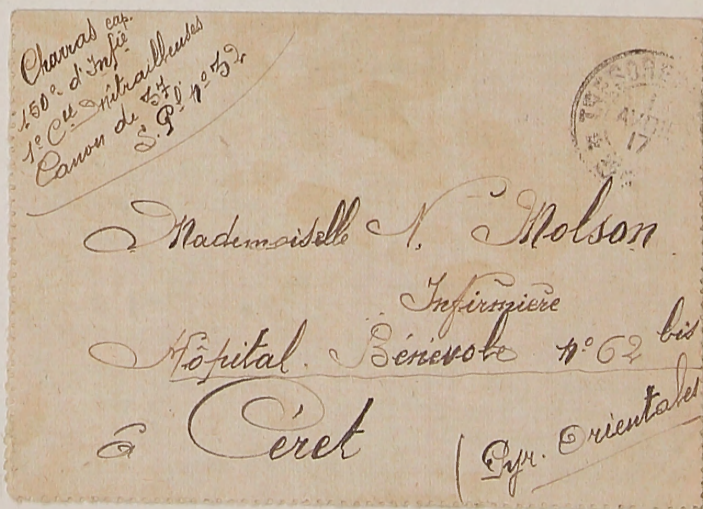 Charras cap.
150e d'Infie
1e Cie Mitrailleuses
Canon de 37
S. Pl. no 32
TRESOR
AVRIL
17
Mademoiselle N. Molson
Infirmière
Hôpital Bénévole no 62 bis
à Céret
(Pyr. Orientales